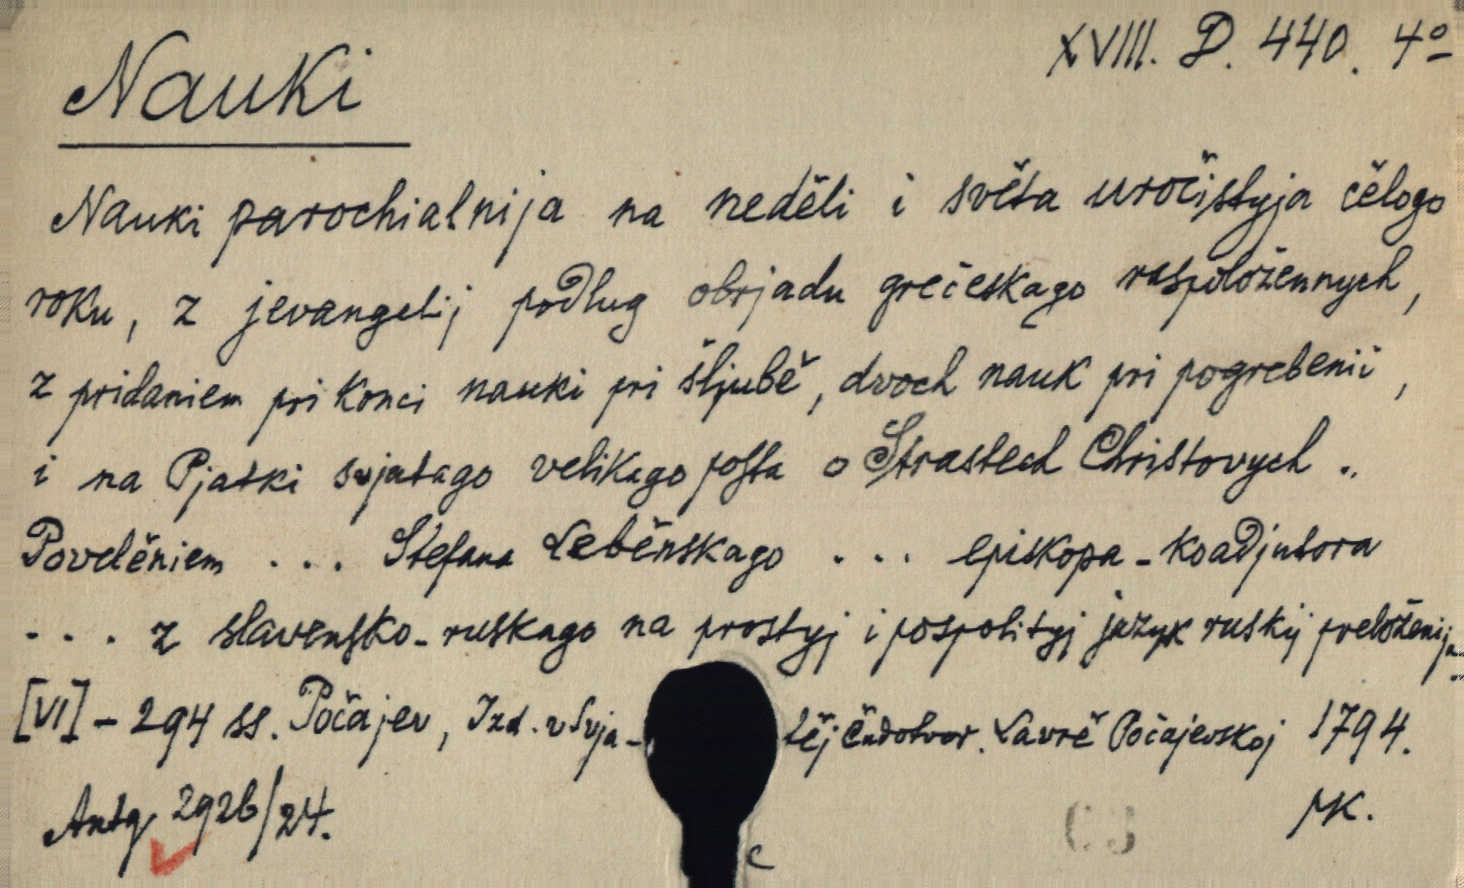 XVIII. D. 440. 4º
Nauki
Nauki parochialnija na neděli i světa uročistyja cělogo
roku, z jevangelij podlug obrjadu grečeskago raspoložennych,
z pridaniem pri konci nauki pri šljubě, dvoch nauk pri pogrebenii,
i na Pjatki svjatago velikago posta o Strastech Christovych ..
Povelěniem ... Stefana Leběnskago ... episkopa-koadjutora
.... z slavensko-ruskago na prostyj i pospolityj jazyk ruskij preloženija..
[VI] - 294 ss. Počajev, Izd. v Svja- těj čudotvor. Lavrě Počajevskoj 1794.
Antq 292b/24. MK.
C